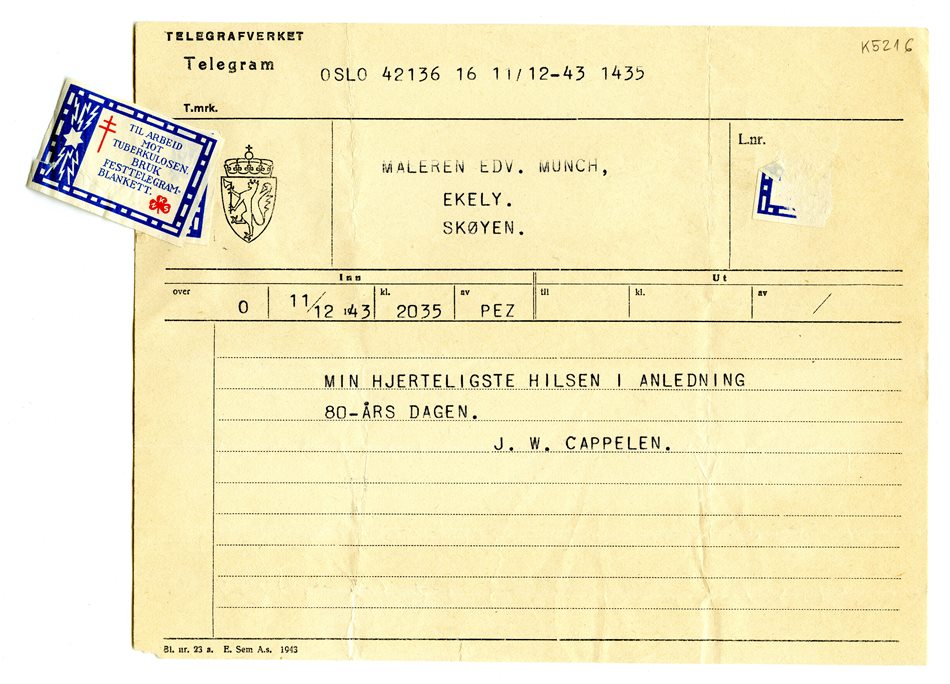 TELEGRAFVERKET
Telegram
OSLO 42136 16 11/12-43 1435
K5216
T.mrk.
TIL ARBEID
MOT
TUBERKULOSEN.
BRUK
FESTTELEGRAM-
BLANKETT.
MALEREN EDV. MUNCH,
EKELY.
SKØYEN.
L.nr.
Inn
Ut
over O 11/12 1943 kl. 2035 av PEZ til kl. av /
MIN HJERTELIGSTE HILSEN I ANLEDNING
80-ÅRS DAGEN.
J. W. CAPPELEN.
Bl. nr. 23 a. E. Sem A.s. 1943